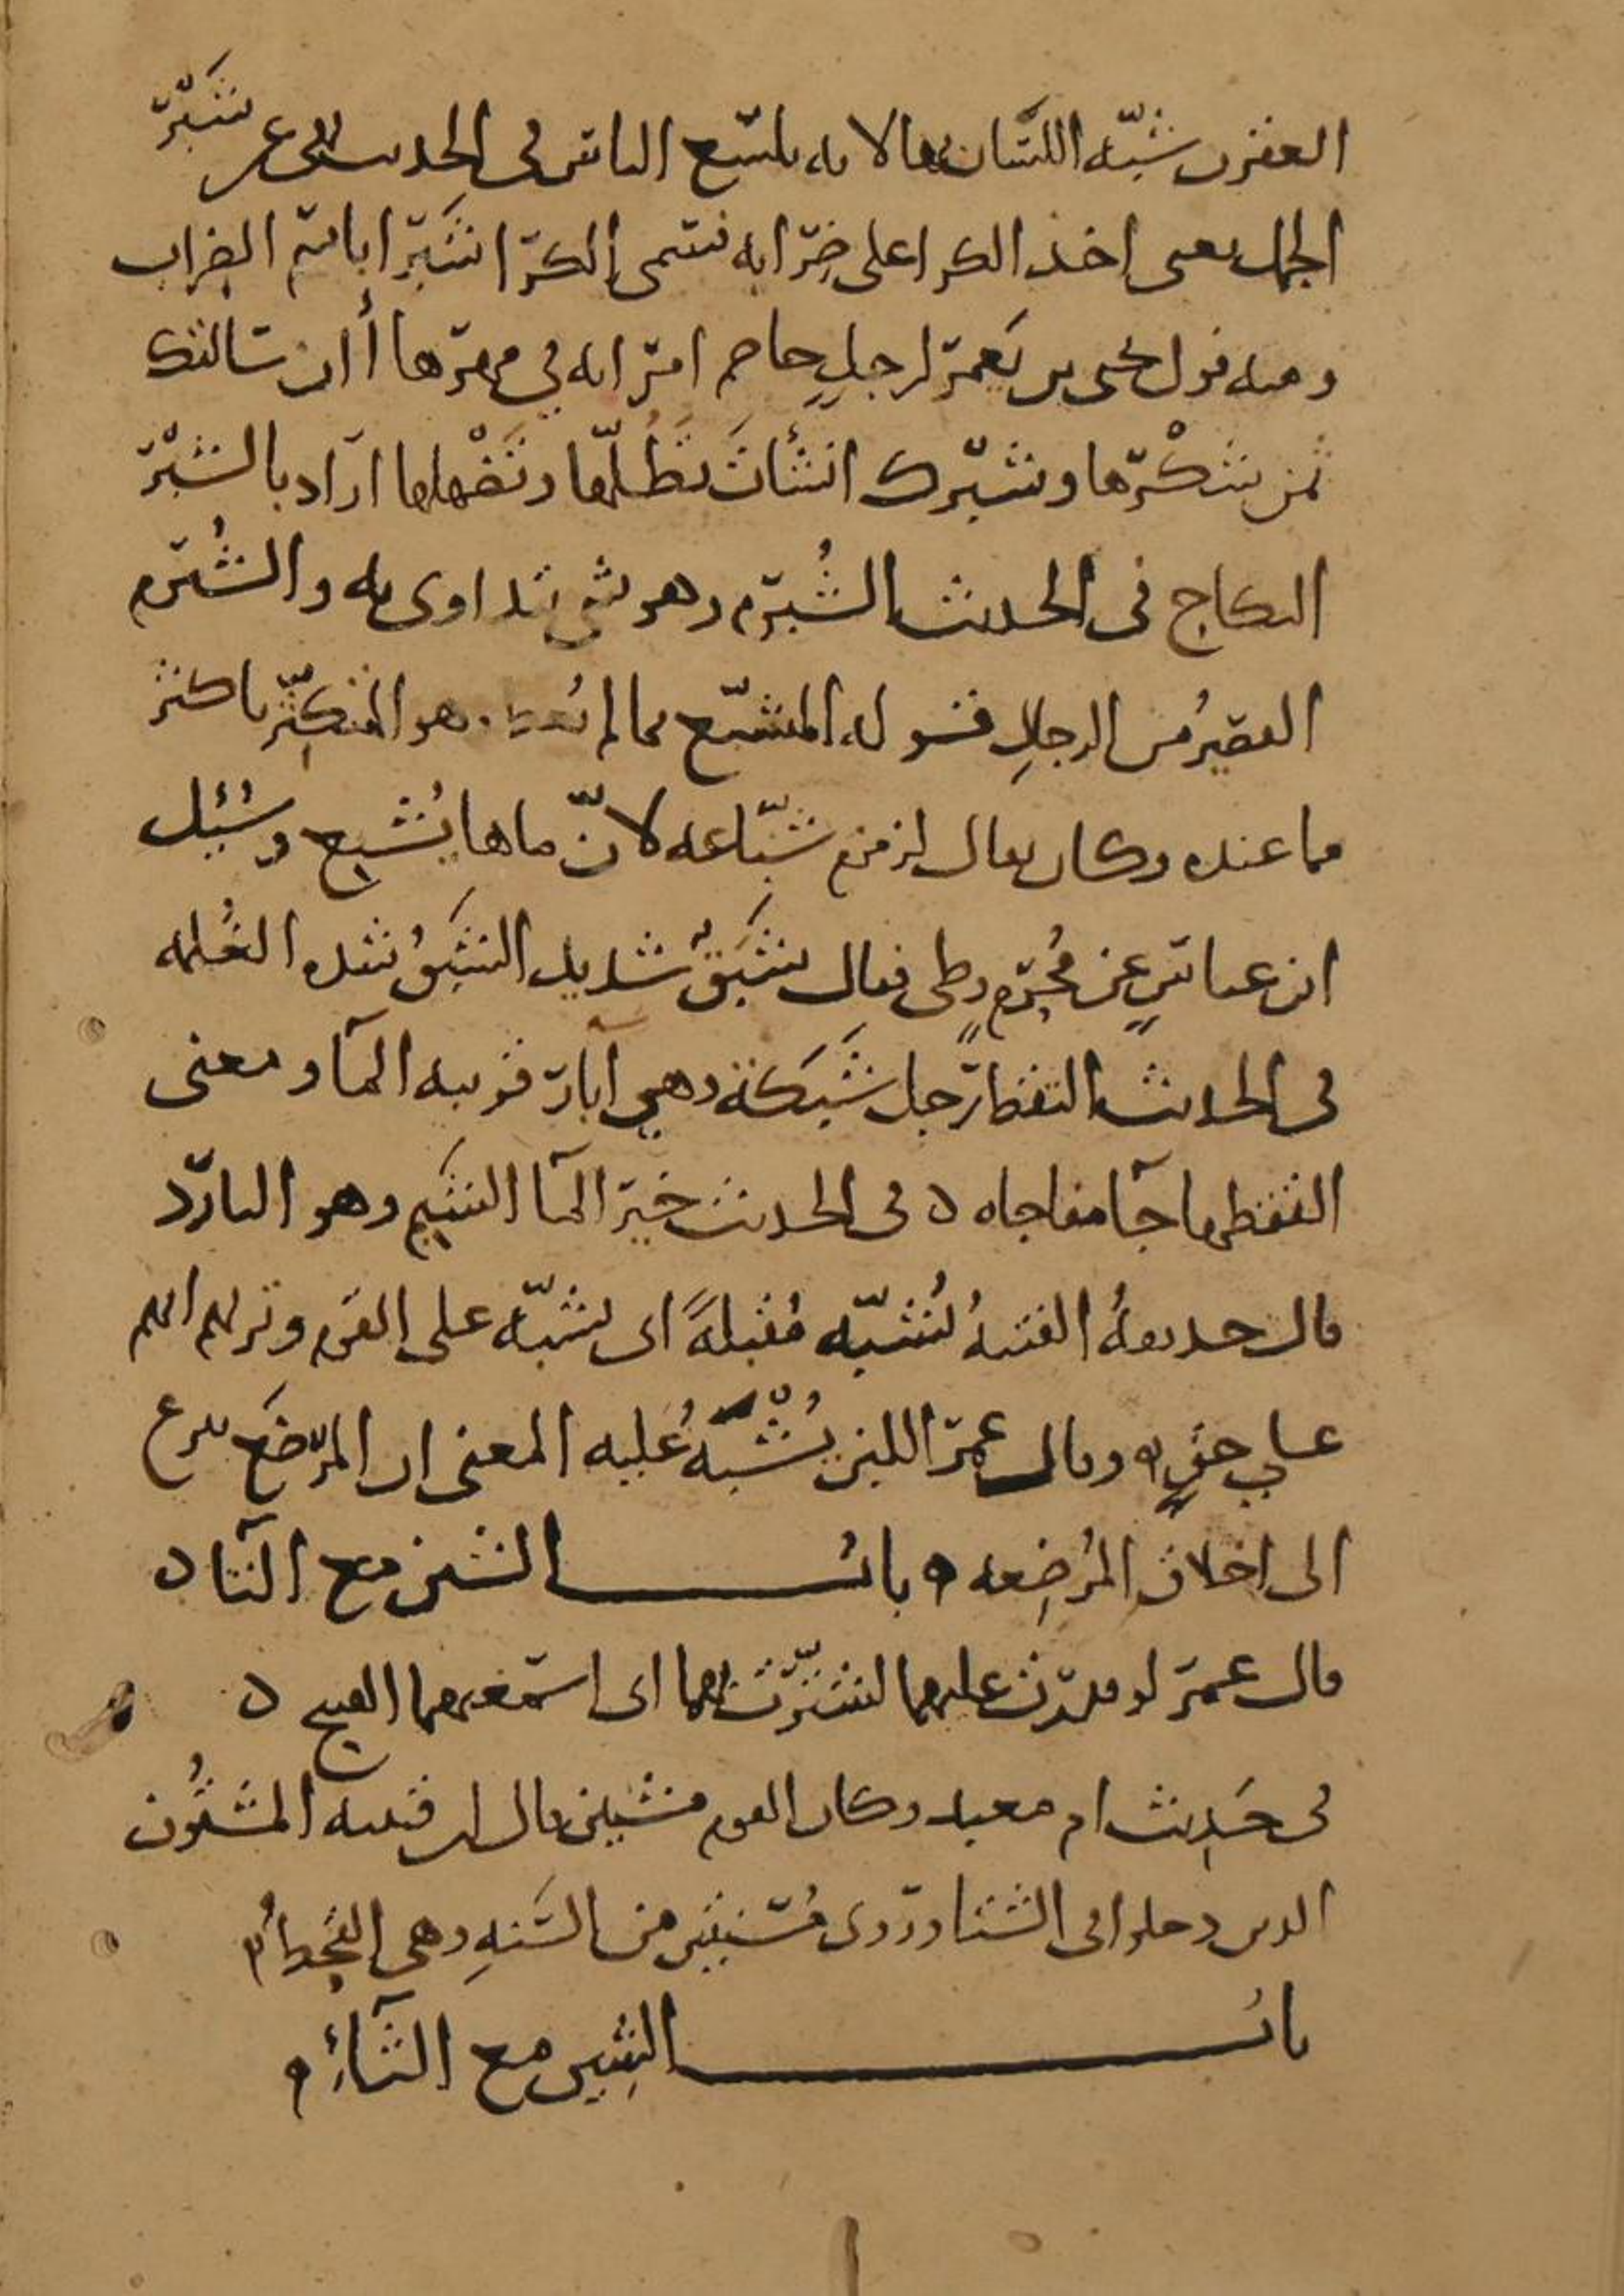 العقرب شبه اللسان بها لانه يلسع الناس في الحديث نهى عن شَبْر
الجمل يعنى اخذ الكرا على ضرابه فسمى الكرا شَبْرا باسم الضراب
ومنه قول يحيى بن يَعمَر لرجلٍ خاصم امراته في مهرها أأن سالتك
ثمن شَكْرها وشبرك انشأتَ تَطُلّها وتَضْهلها اراد بالشبْر
النكاح في الحديث الشُبرم وهو شي يتداوى به والشُبرم
القصيرُ من الرجالِ قوله المتشبّع بما لم يُعطَ هو المتكثّر باكثر
مما عنده وكان يقال لزمزم شبّاعه لانّ ماها يُشبع وسُئِل
ابن عباسٍ عن مُحرمٍ وطى فقال شَبَقٌ شديد الشَبَقُ شده الغُلمه
في الحديث التقط رجل شَبَكة وهي آبار قريبه المآ ومعنى
التقطها جآ مفاجاه ه في الحديث خير المآ الشَبِم وهو البارد
قال حذيفهُ الفتنهُ تُشبّه مُقبلةً اى تشبّه على القوم وتريهم انهم
على حقٍ ه وقال عمر اللبن يُشْبَهُ عليه المعنى ان المرضَع ينزع
الى اخلاق المُرضِعه ه بابُ الشين مع التآ ه
قال عمر لو قدرت عليهما لشتّرت بهما اى اسمعتهما القبيح ه
في حَدِيث ام معبد وكان القوم مشتين قال ابن قتيبه المشتُون
الذين دخلوا في الشتا وروى مُسنتين من السَنهِ وهى القحط ه
بابُ الشِين مع الثآءِ ه